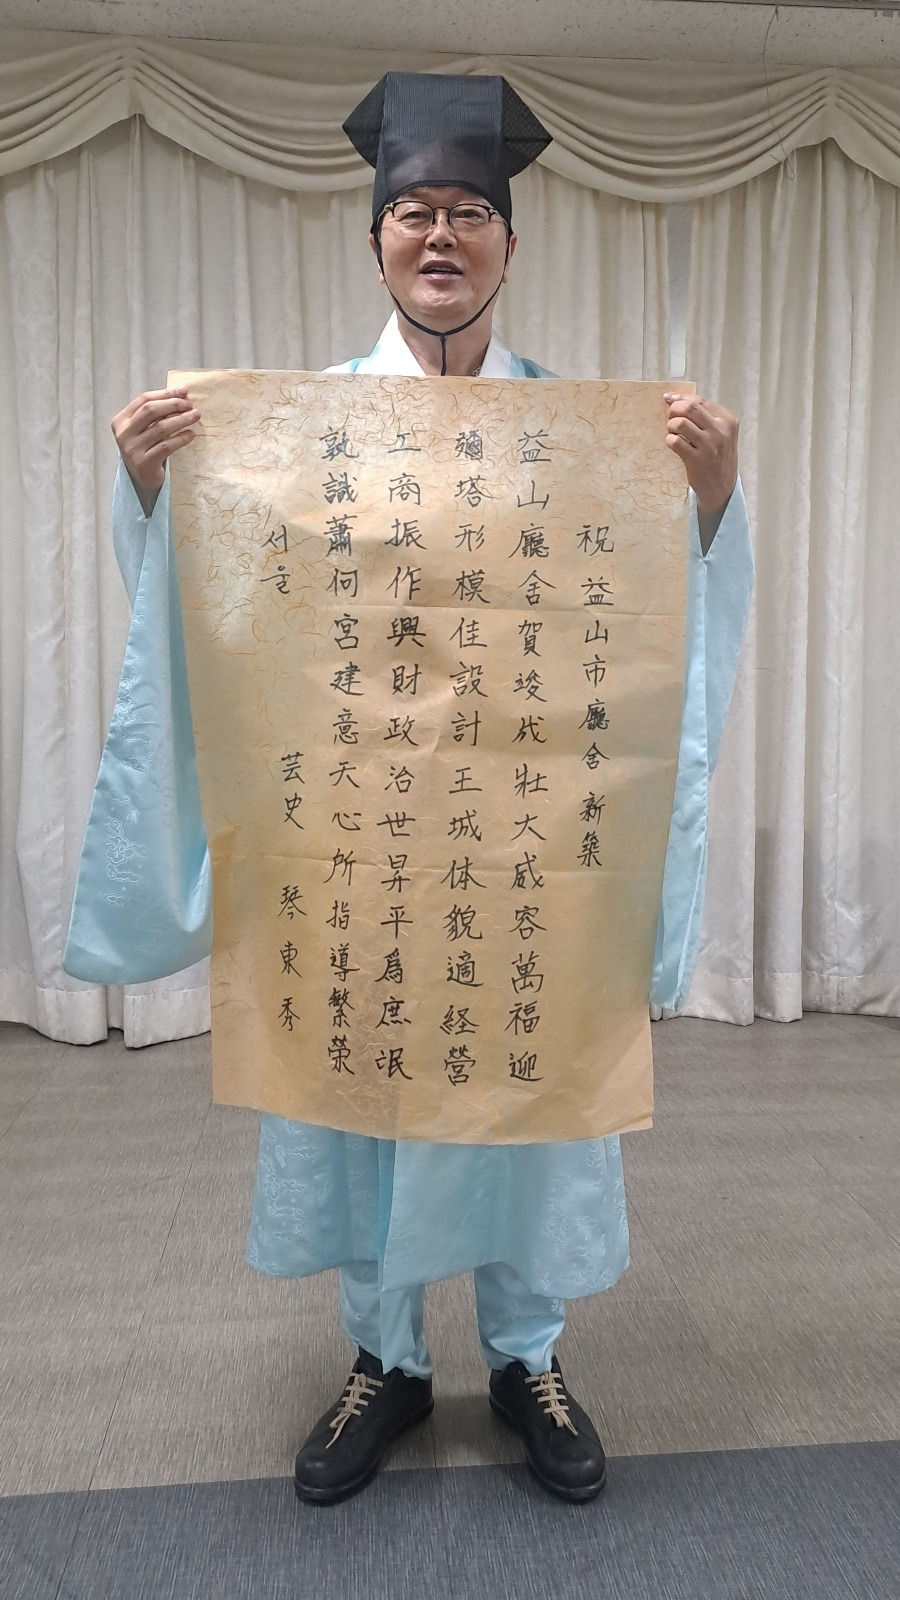 祝 益山市廳舍 新築
益山廳舍賀竣成壯大威容萬福迎
彌塔形模佳設計王城体貌適経營
工商振作興財政治世昇平爲庶氓
孰識蕭何宮建意天心所指導繁榮
서울 芸史 琴東秀